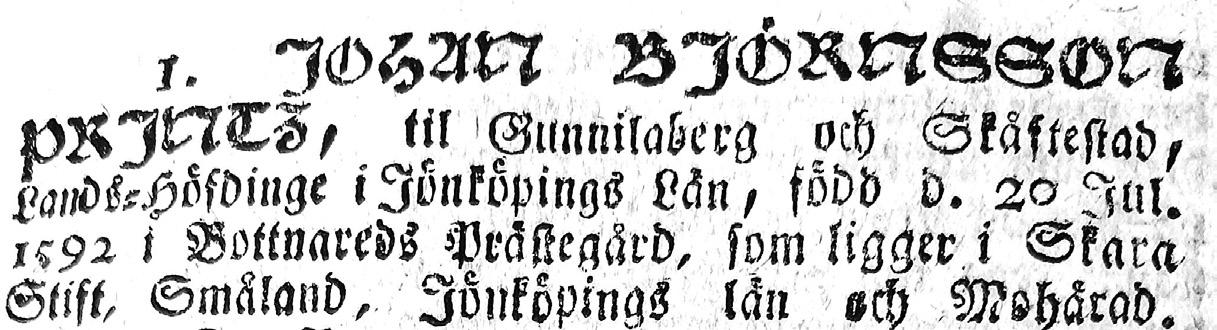 1. JOHAN BJÖRNSSON
PRINTZ, til Gunnilaberg och Skåftestad,
Lands-Höfdinge i Jönköpings Län, född d. 20 Jul.
1592 i Bottnareds Prästegård, som ligger i Skara
Stift, Småland, Jönköpings län och Mohärad.